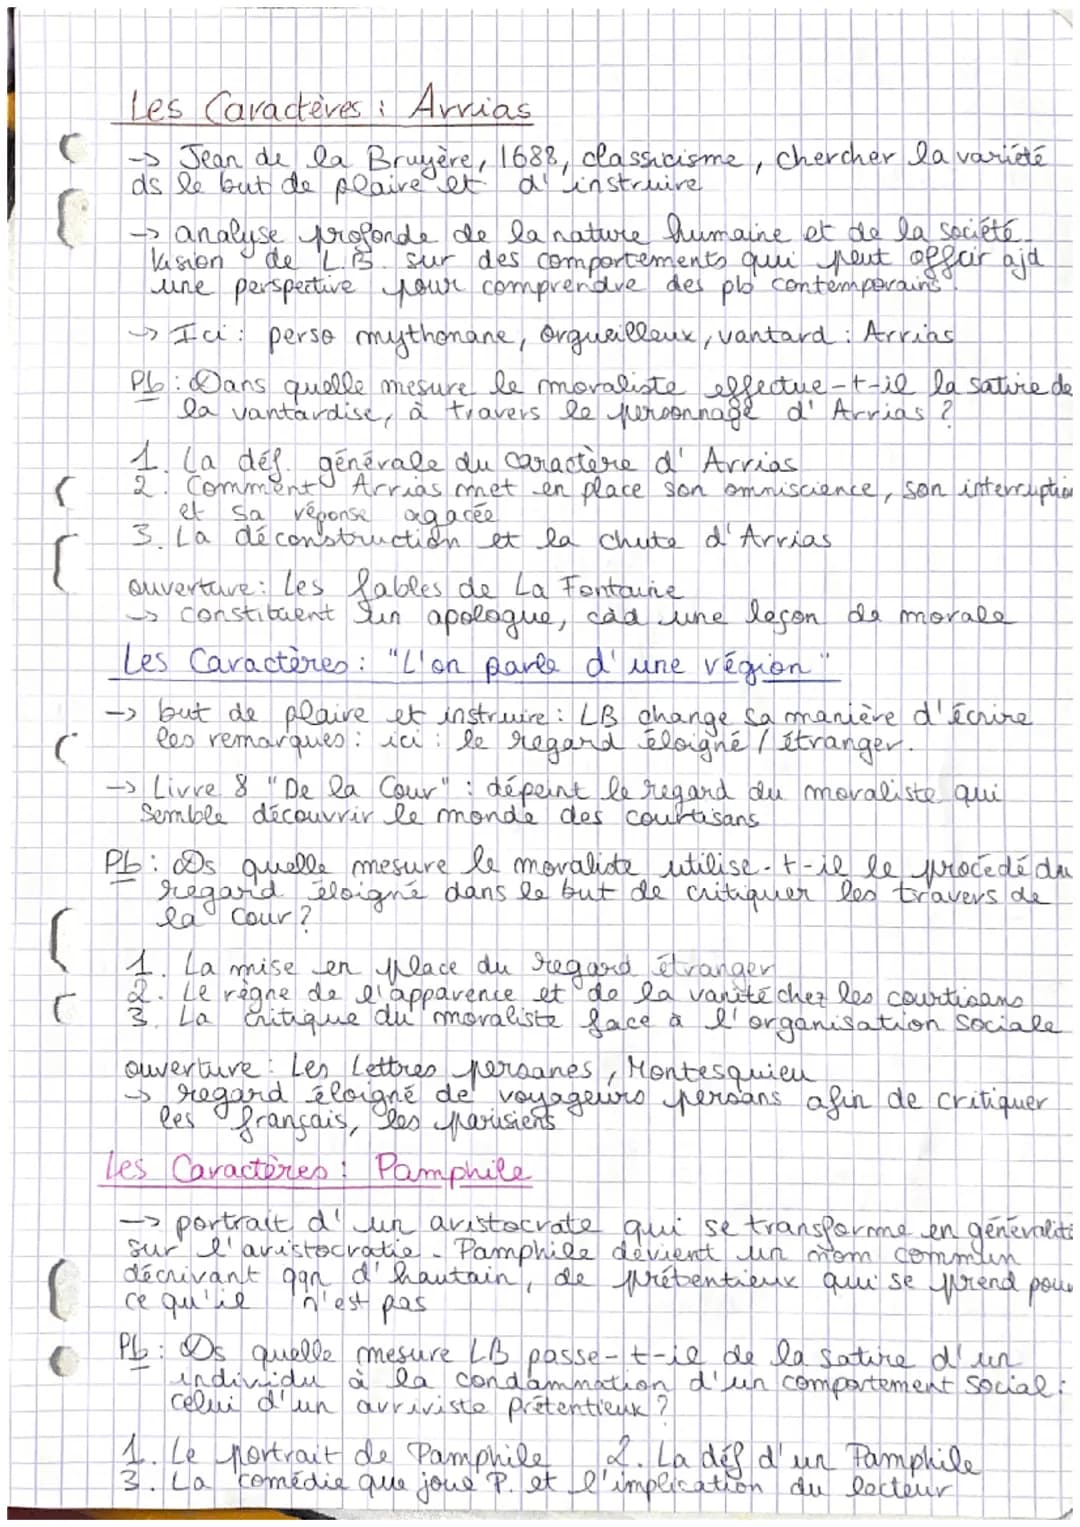 Les Caractères : Arrias
-> Jean de la Bruyère, 1688, classicisme, chercher la variété
ds le but de plaire et d'instruire
-> analyse profonde de la nature humaine et de la société.
Vision de L.B. sur des comportements qui peut offrir ajd
une perspective pour comprendre des pb contemporains.
-> Ici : perso mythomane, orgueilleux, vantard : Arrias
Pb : Dans quelle mesure le moraliste effectue-t-il la satire de
la vantardise, à travers le personnage d'Arrias ?
1. La déf. générale du caractère d'Arrias
2. Comment Arrias met en place son omniscience, son interruption
et sa réponse agacée
3. La déconstruction et la chute d'Arrias
ouverture : Les fables de La Fontaine
-> constituent un apologue, càd une leçon de morale
Les Caractères : "L'on parle d'une région"
-> but de plaire et instruire : LB change sa manière d'écrire
les remarques : ici : le regard éloigné / étranger.
-> Livre 8 "De la Cour" : dépeint le regard du moraliste qui
semble découvrir le monde des courtisans
Pb : Ds quelle mesure le moraliste utilise-t-il le procédé du
regard éloigné dans le but de critiquer les travers de
la Cour ?
1. La mise en place du regard étranger
2. Le règne de l'apparence et de la vanité chez les courtisans
3. La critique du moraliste face à l'organisation sociale
ouverture : Les Lettres persanes, Montesquieu
-> regard éloigné de voyageurs persans afin de critiquer
les français, les parisiens
Les Caractères : Pamphile
-> portrait d'un aristocrate qui se transforme en généralité
sur l'aristocratie. Pamphile devient un nom commun
décrivant qqn d'hautain, de prétentieux qui se prend pour
ce qu'il n'est pas
Pb : Ds quelle mesure LB passe-t-il de la satire d'un
individu à la condammation d'un comportement social :
celui d'un arriviste prétentieux ?
1. Le portrait de Pamphile 2. La déf d'un Pamphile
3. La comédie que joue P. et l'implication du lecteur